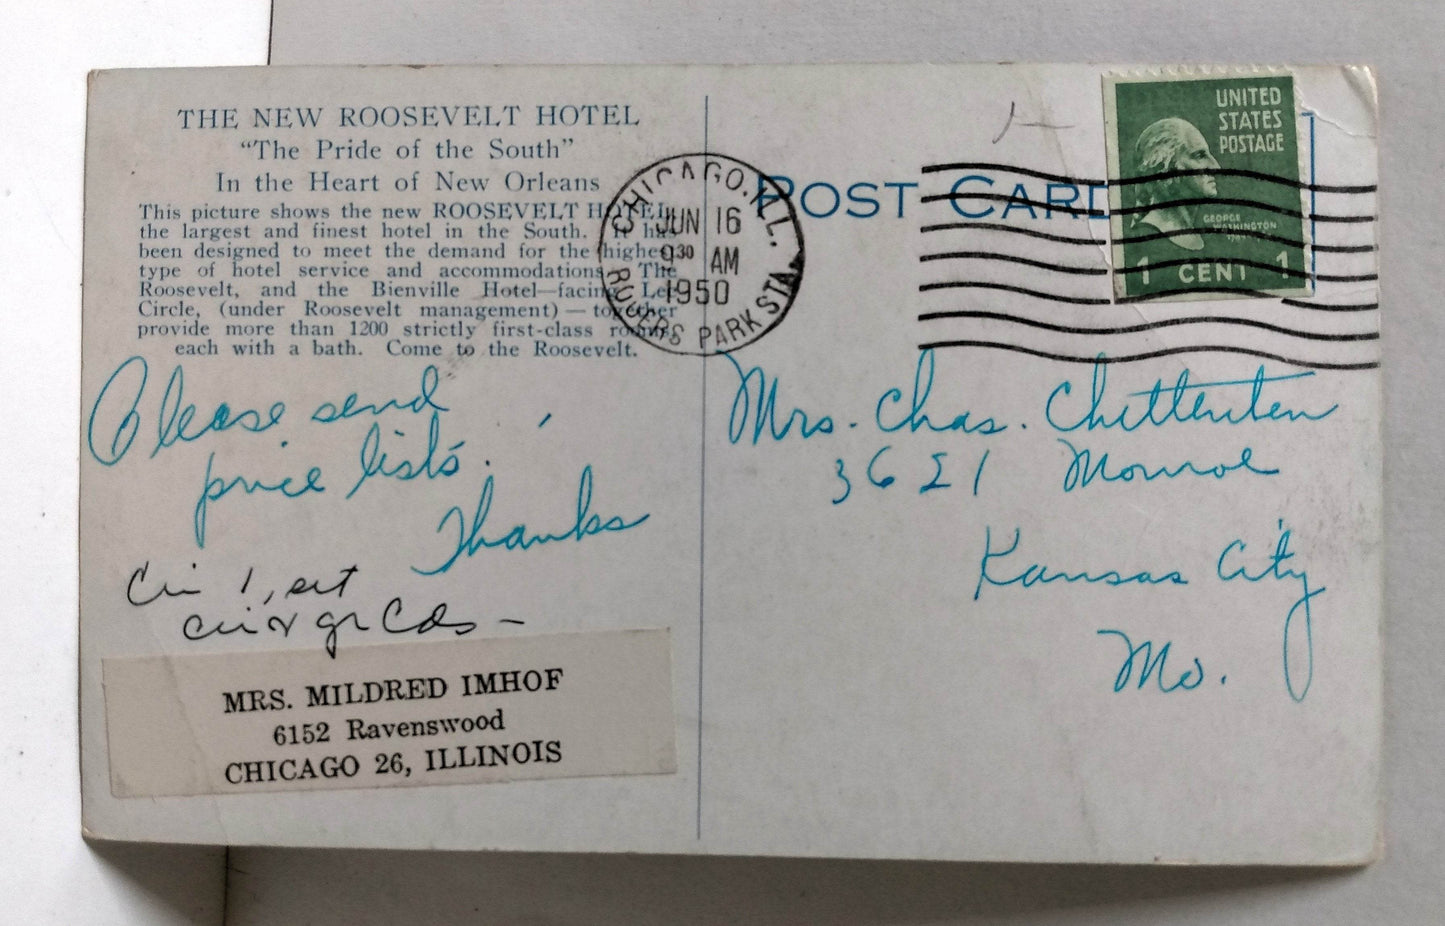 THE NEW ROOSEVELT HOTEL
"The Pride of the South"
In the Heart of New Orleans
This picture shows the new ROOSEVELT HOTEL,
the largest and finest hotel in the South. It has
been designed to meet the demand for the highest
type of hotel service and accommodations. The
Roosevelt, and the Bienville Hotel—facing Lee
Circle, (under Roosevelt management) — together
provide more than 1200 strictly first-class rooms,
each with a bath. Come to the Roosevelt.
Please send
price lists.
Thanks
1, set
MRS. MILDRED IMHOF
6152 Ravenswood
CHICAGO 26, ILLINOIS
CHICAGO. ILL.
JUN 16
9 30 AM
1950
ROGERS PARK STA.
POST CARD
UNITED
STATES
POSTAGE
GEORGE
WASHINGTON
1 CENT 1
Mrs. Chas. Chittenten
3621 Monroe
Kansas City
Mo.